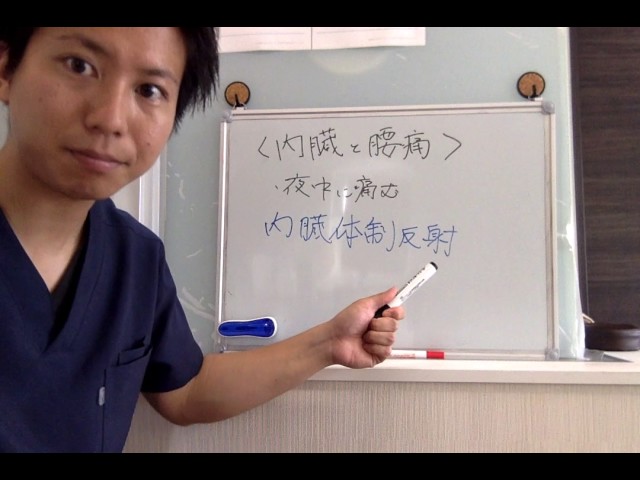 〈内臓と腰痛〉
・夜中に痛む
内臓体制反射